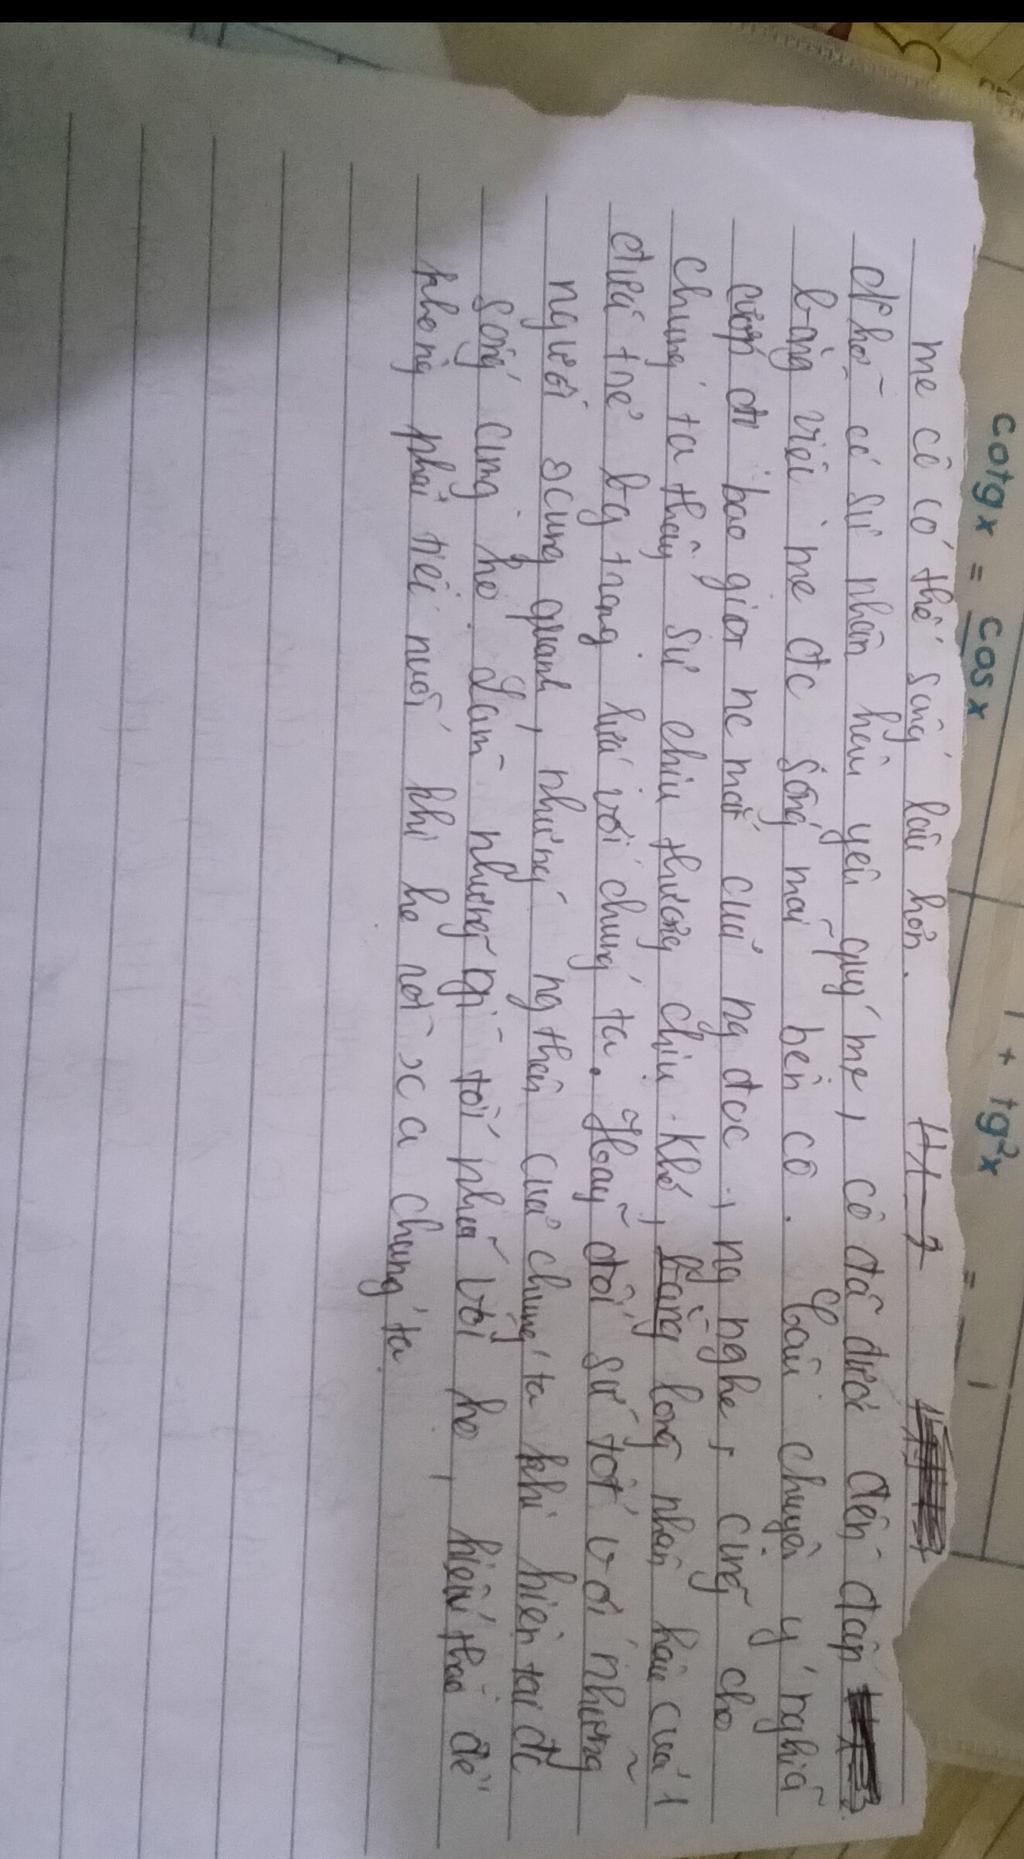 cotgx = cosx
1 + tg²x =
mẹ cô có thể sống lâu hơn.
nhỏ có sự nhân hậu yêu quý mẹ, cô đã được đền đáp
bằng việc mẹ đc sống mãi bên cô. Câu chuyện ý nghĩa
cướp đi bao giọt nc mắt của ng đọc, ng nghe, cũng cho
chúng ta thấy sự chịu thương chịu khó, bằng lòng nhân hậu của 1
đứa trẻ bg trang lứa với chúng ta. Hãy đối sử tốt với những
người xcung quanh, những ng thân của chúng ta khi hiện tại đc
sống cùng họ. Làm những gì tốt nhất với họ, hiếu thảo để
không phải tiếc nuối khi họ rời xa chúng ta